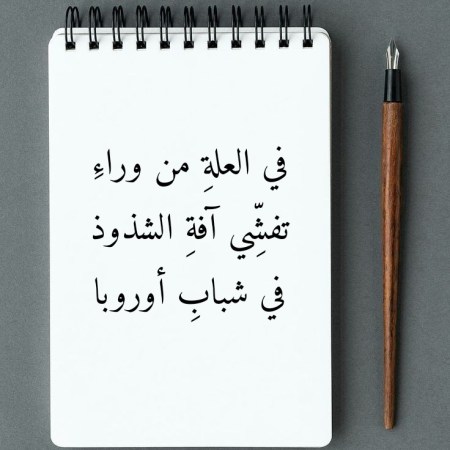 في العلةِ من وراءِ
تفشِّي آفةِ الشذوذ
في شبابِ أوروبا